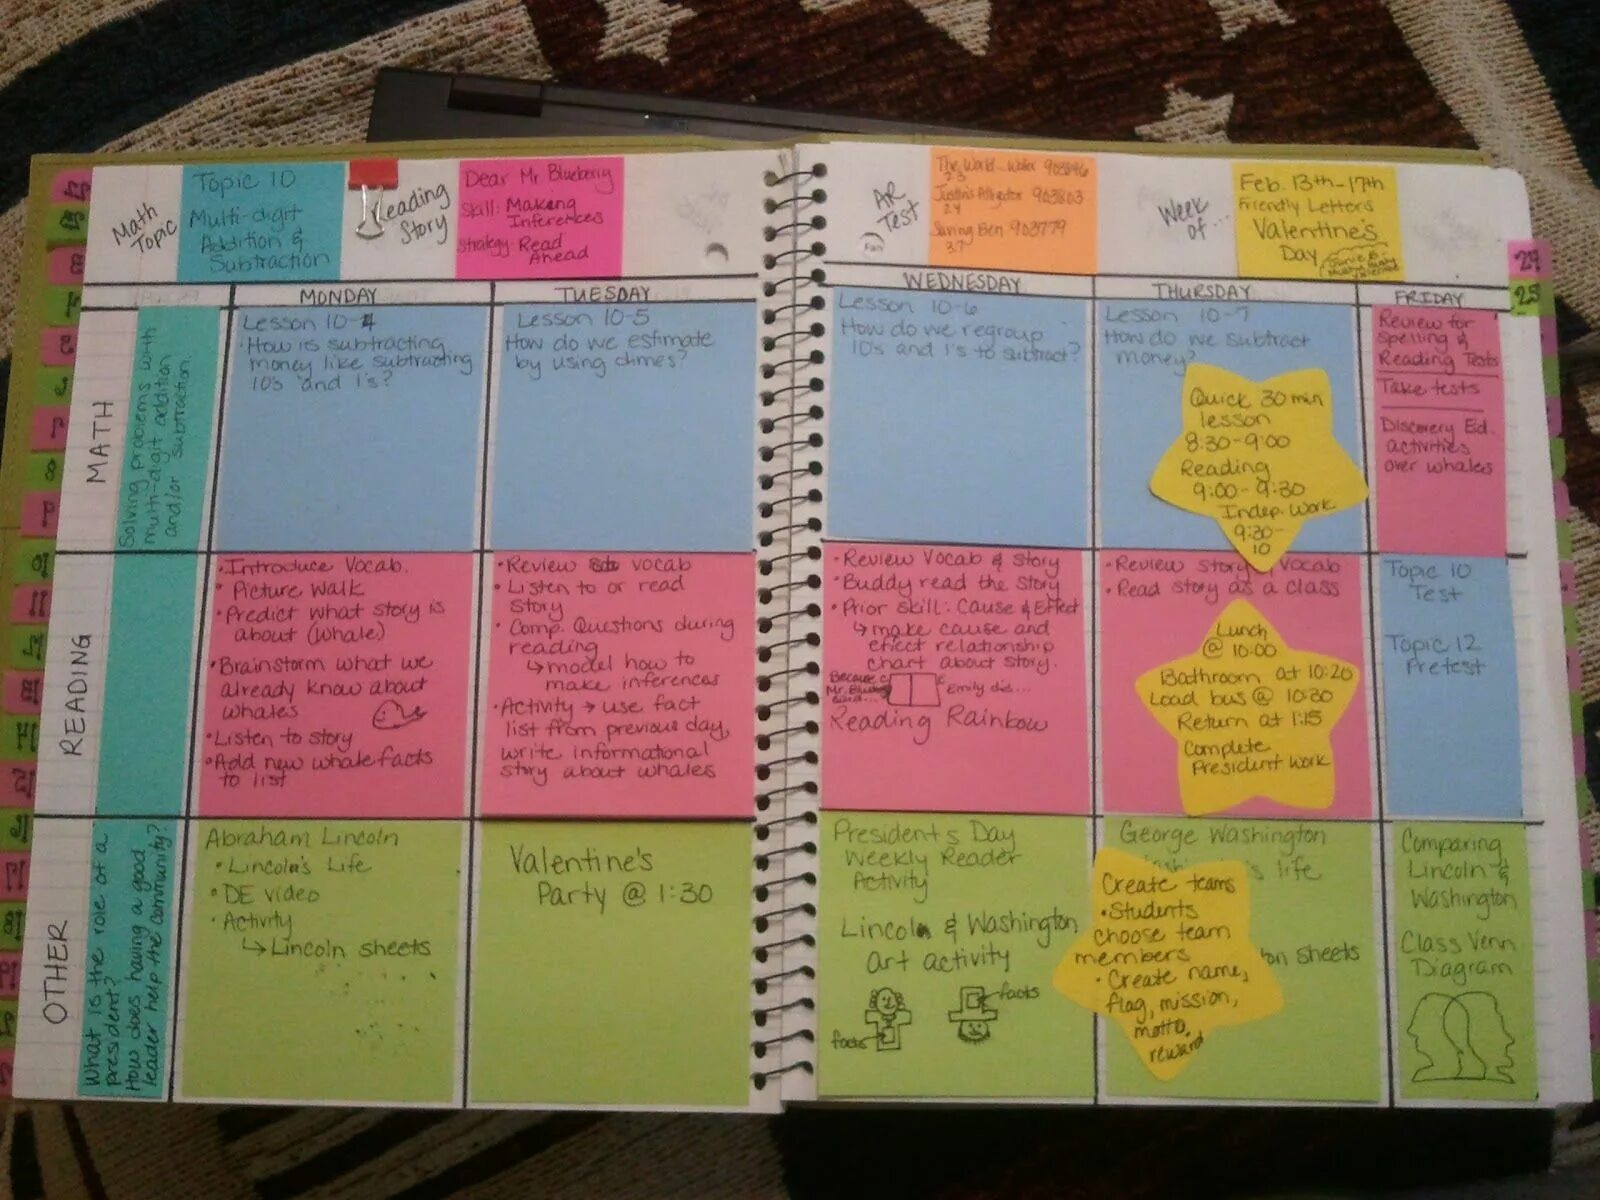 Math
Topic
Topic 10
Multi-digit
Addition &
Subtraction
Reading
Story
Dear Mr Blueberry
Skill: Making
Inferences
Strategy: Read
Ahead
AR
Test
The World 903896
2.3
Justin's Alligator 903803
2.4
Saving Ben 903779
3.7
Week
of...
Feb. 13th-17th
Friendly Letters
Valentine's
Day
MONDAY
TUESDAY
WEDNESDAY
THURSDAY
FRIDAY
MATH
Solving problems with
multi-digit addition
and/or subtraction.
Lesson 10-4
How is subtracting
money like subtracting
10's and 1's?
Lesson 10-5
How do we estimate
by using dimes?
Lesson 10-6
How do we regroup
10's and 1's to subtract?
Lesson 10-7
How do we subtract
money?
Quick 30 min
lesson
8:30-9:00
Reading
9:00-9:30
Indep. Work
9:30-
10
Review for
Spelling &
Reading Tests
Take tests
Discovery Ed.
activities
over whales
READING
• Introduce Vocab.
• Picture Walk
• Predict what story is
about (whale)
• Brainstorm what we
already know about
whales
• Listen to story
• Add new whale facts
to list
• Review vocab
• Listen to or read
story
• Comp. Questions during
reading
↳ model how to
make inferences
• Activity → use fact
list from previous day,
write informational
story about whales
• Review Vocab & Story
• Buddy read the story
• Prior skill: Cause & Effect
↳ make cause and
effect relationship
chart about story.
Because
Mr. Blue
Emily did...
Reading Rainbow
• Review story & vocab
• Read story as a class
Lunch
@ 10:00
Bathroom at 10:20
Load bus @ 10:30
Return at 1:15
Complete
President work
Topic 10
Test
Topic 12
Pretest
OTHER
What is the role of a
president?
How does having a good
leader help the community?
Abraham Lincoln
• Lincoln's Life
• DE video
• Activity
↳ Lincoln sheets
Valentine's
Party @ 1:30
President's Day
Weekly Reader
Activity
Lincoln & Washington
art activity
facts
facts
George Washington
life
Create teams
• Students
choose team
members
• Create name,
flag, mission,
motto,
reward
on sheets
Comparing
Lincoln &
Washington
Class Venn
Diagram
24
25